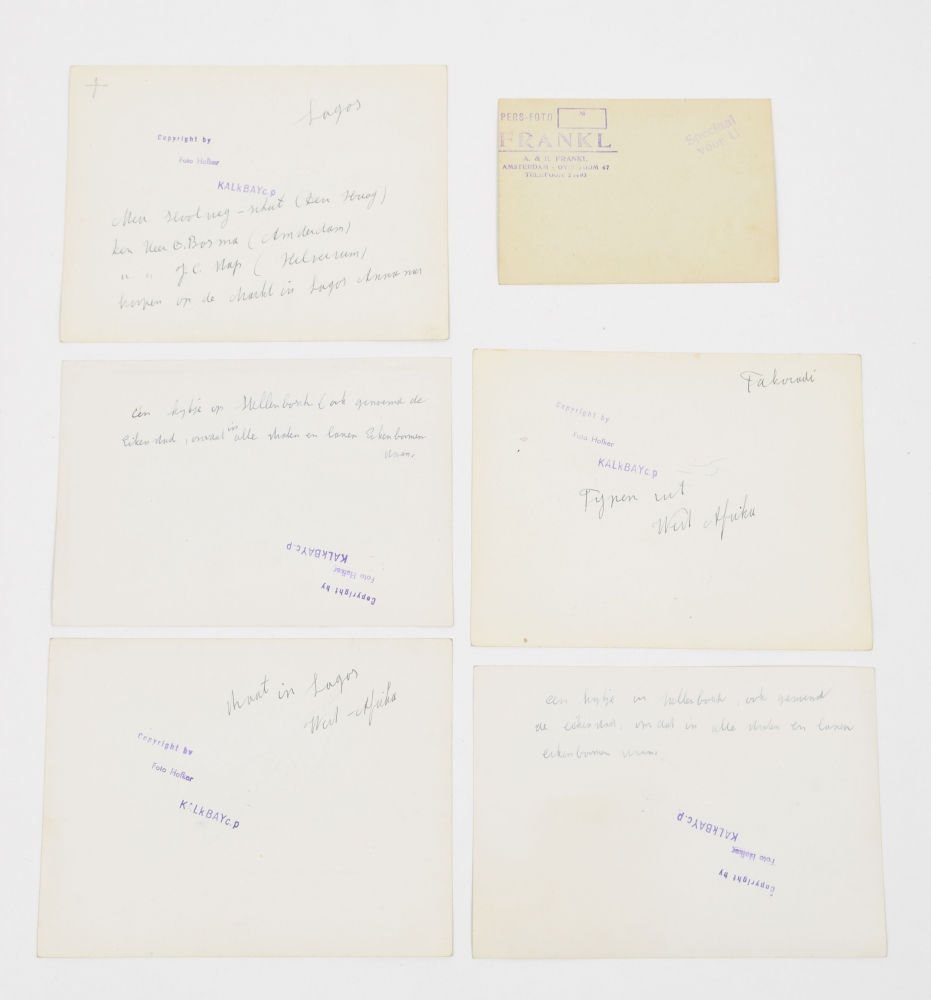 Lagos
Copyright by
Foto Hofker
KALkBAYc.p
(Den Haag)
den Heer B. Bosma (Amsterdam)
" " J.C. (Hilversum)
koopen op de Markt in Lagos
PERS-FOTO N
FRANKL
A. & E. FRANKL
AMSTERDAM
TELEFOON
Speciaal
voor U
een kijkje in Stellenbosch (ook genoemd de
Eiken stad, omdat in alle straten en lanen Eikenbomen
KALkBAYc.p
Foto Hofker
Copyright by
Takoradi
Copyright by
Foto Hofker
KALKBAYc.p
Typen uit
West Afrika
straat in Lagos
West-Afrika
Copyright by
Foto Hofker
KALkBAYc.p
een kijkje in Stellenbosch, ook genoemd
de eiken stad, omdat in alle straten en lanen
eikenbomen
KALKBAYc.p
Foto Hofker
Copyright by